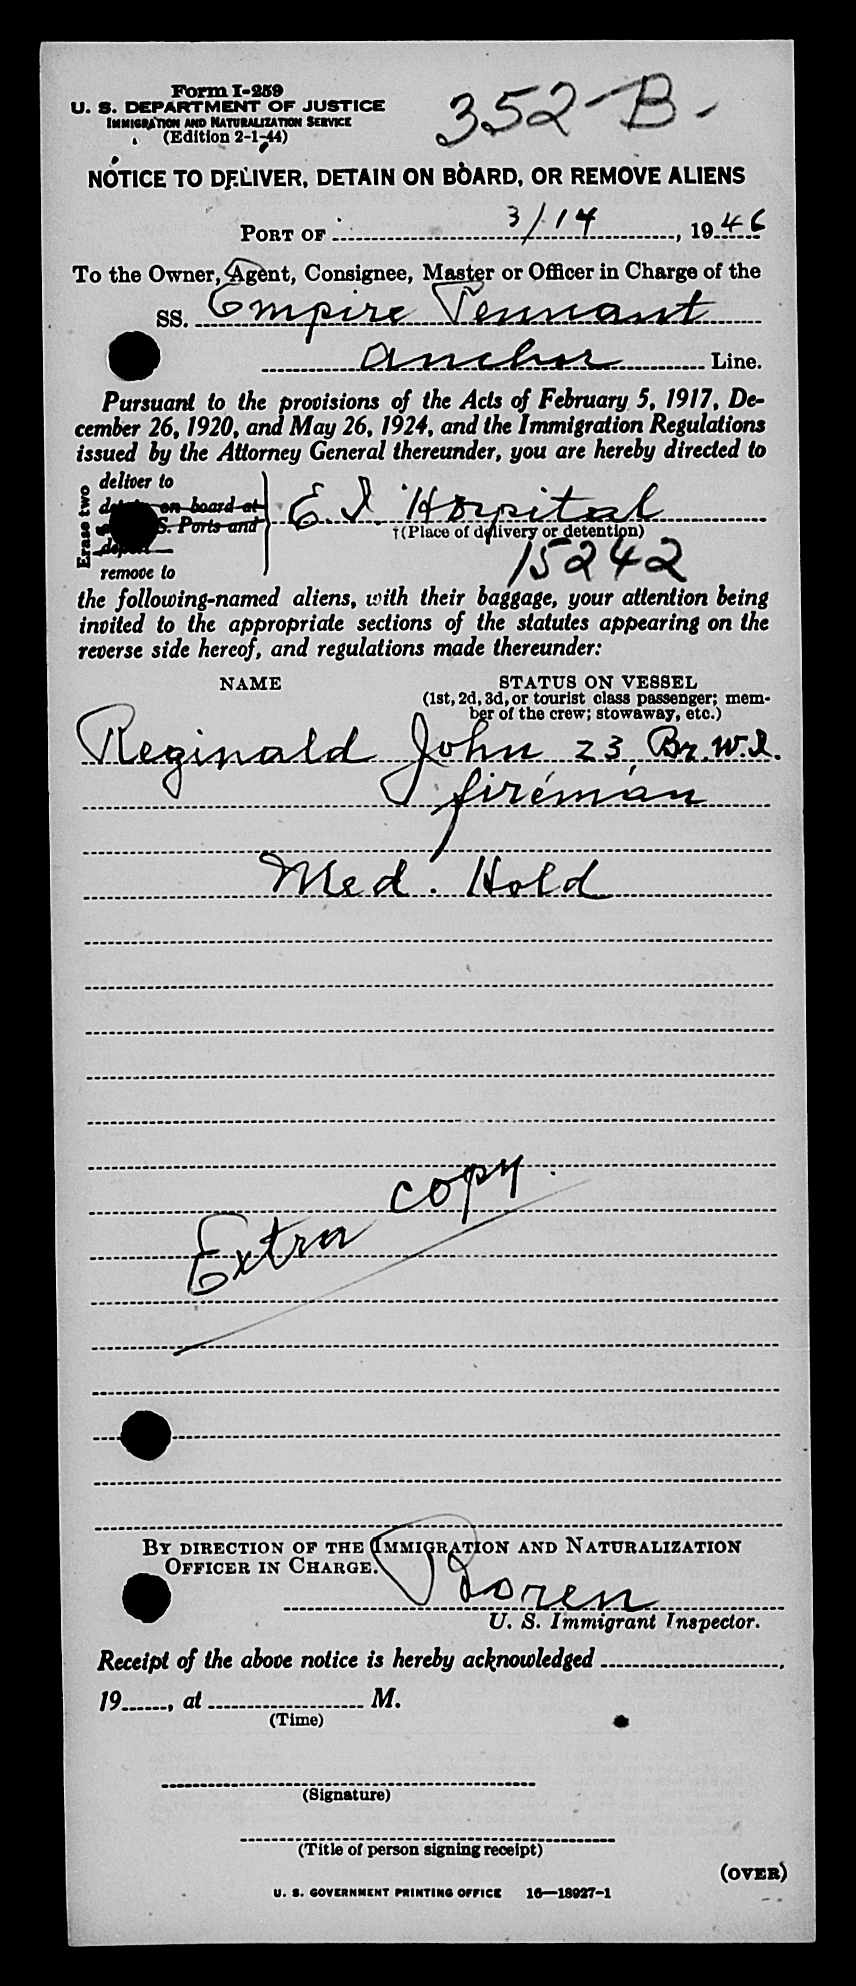 Form I-259
U. S. DEPARTMENT OF JUSTICE
IMMIGRATION AND NATURALIZATION SERVICE
(Edition 2-1-44)
352-B-
NOTICE TO DELIVER, DETAIN ON BOARD, OR REMOVE ALIENS
PORT OF 3/14, 1946
To the Owner, Agent, Consignee, Master or Officer in Charge of the
SS. Empire Tennant
Anchor Line.
Pursuant to the provisions of the Acts of February 5, 1917, De-
cember 26, 1920, and May 26, 1924, and the Immigration Regulations
issued by the Attorney General thereunder, you are hereby directed to
Erase two
deliver to
on board at
S. Ports and
deport
remove to
E. I. Hospital
†(Place of delivery or detention)
15242
the following-named aliens, with their baggage, your attention being
invited to the appropriate sections of the statutes appearing on the
reverse side hereof, and regulations made thereunder:
NAME STATUS ON VESSEL
(1st, 2d, 3d, or tourist class passenger; mem-
ber of the crew; stowaway, etc.)
Reginald John 23 Br. W.I.
fireman
Med. Hold
Extra copy.
BY DIRECTION OF THE IMMIGRATION AND NATURALIZATION
OFFICER IN CHARGE.
U. S. Immigrant Inspector.
Receipt of the above notice is hereby acknowledged
19, at M.
(Time)
(Signature)
(Title of person signing receipt)
(OVER)
U. S. GOVERNMENT PRINTING OFFICE 16—18927-1